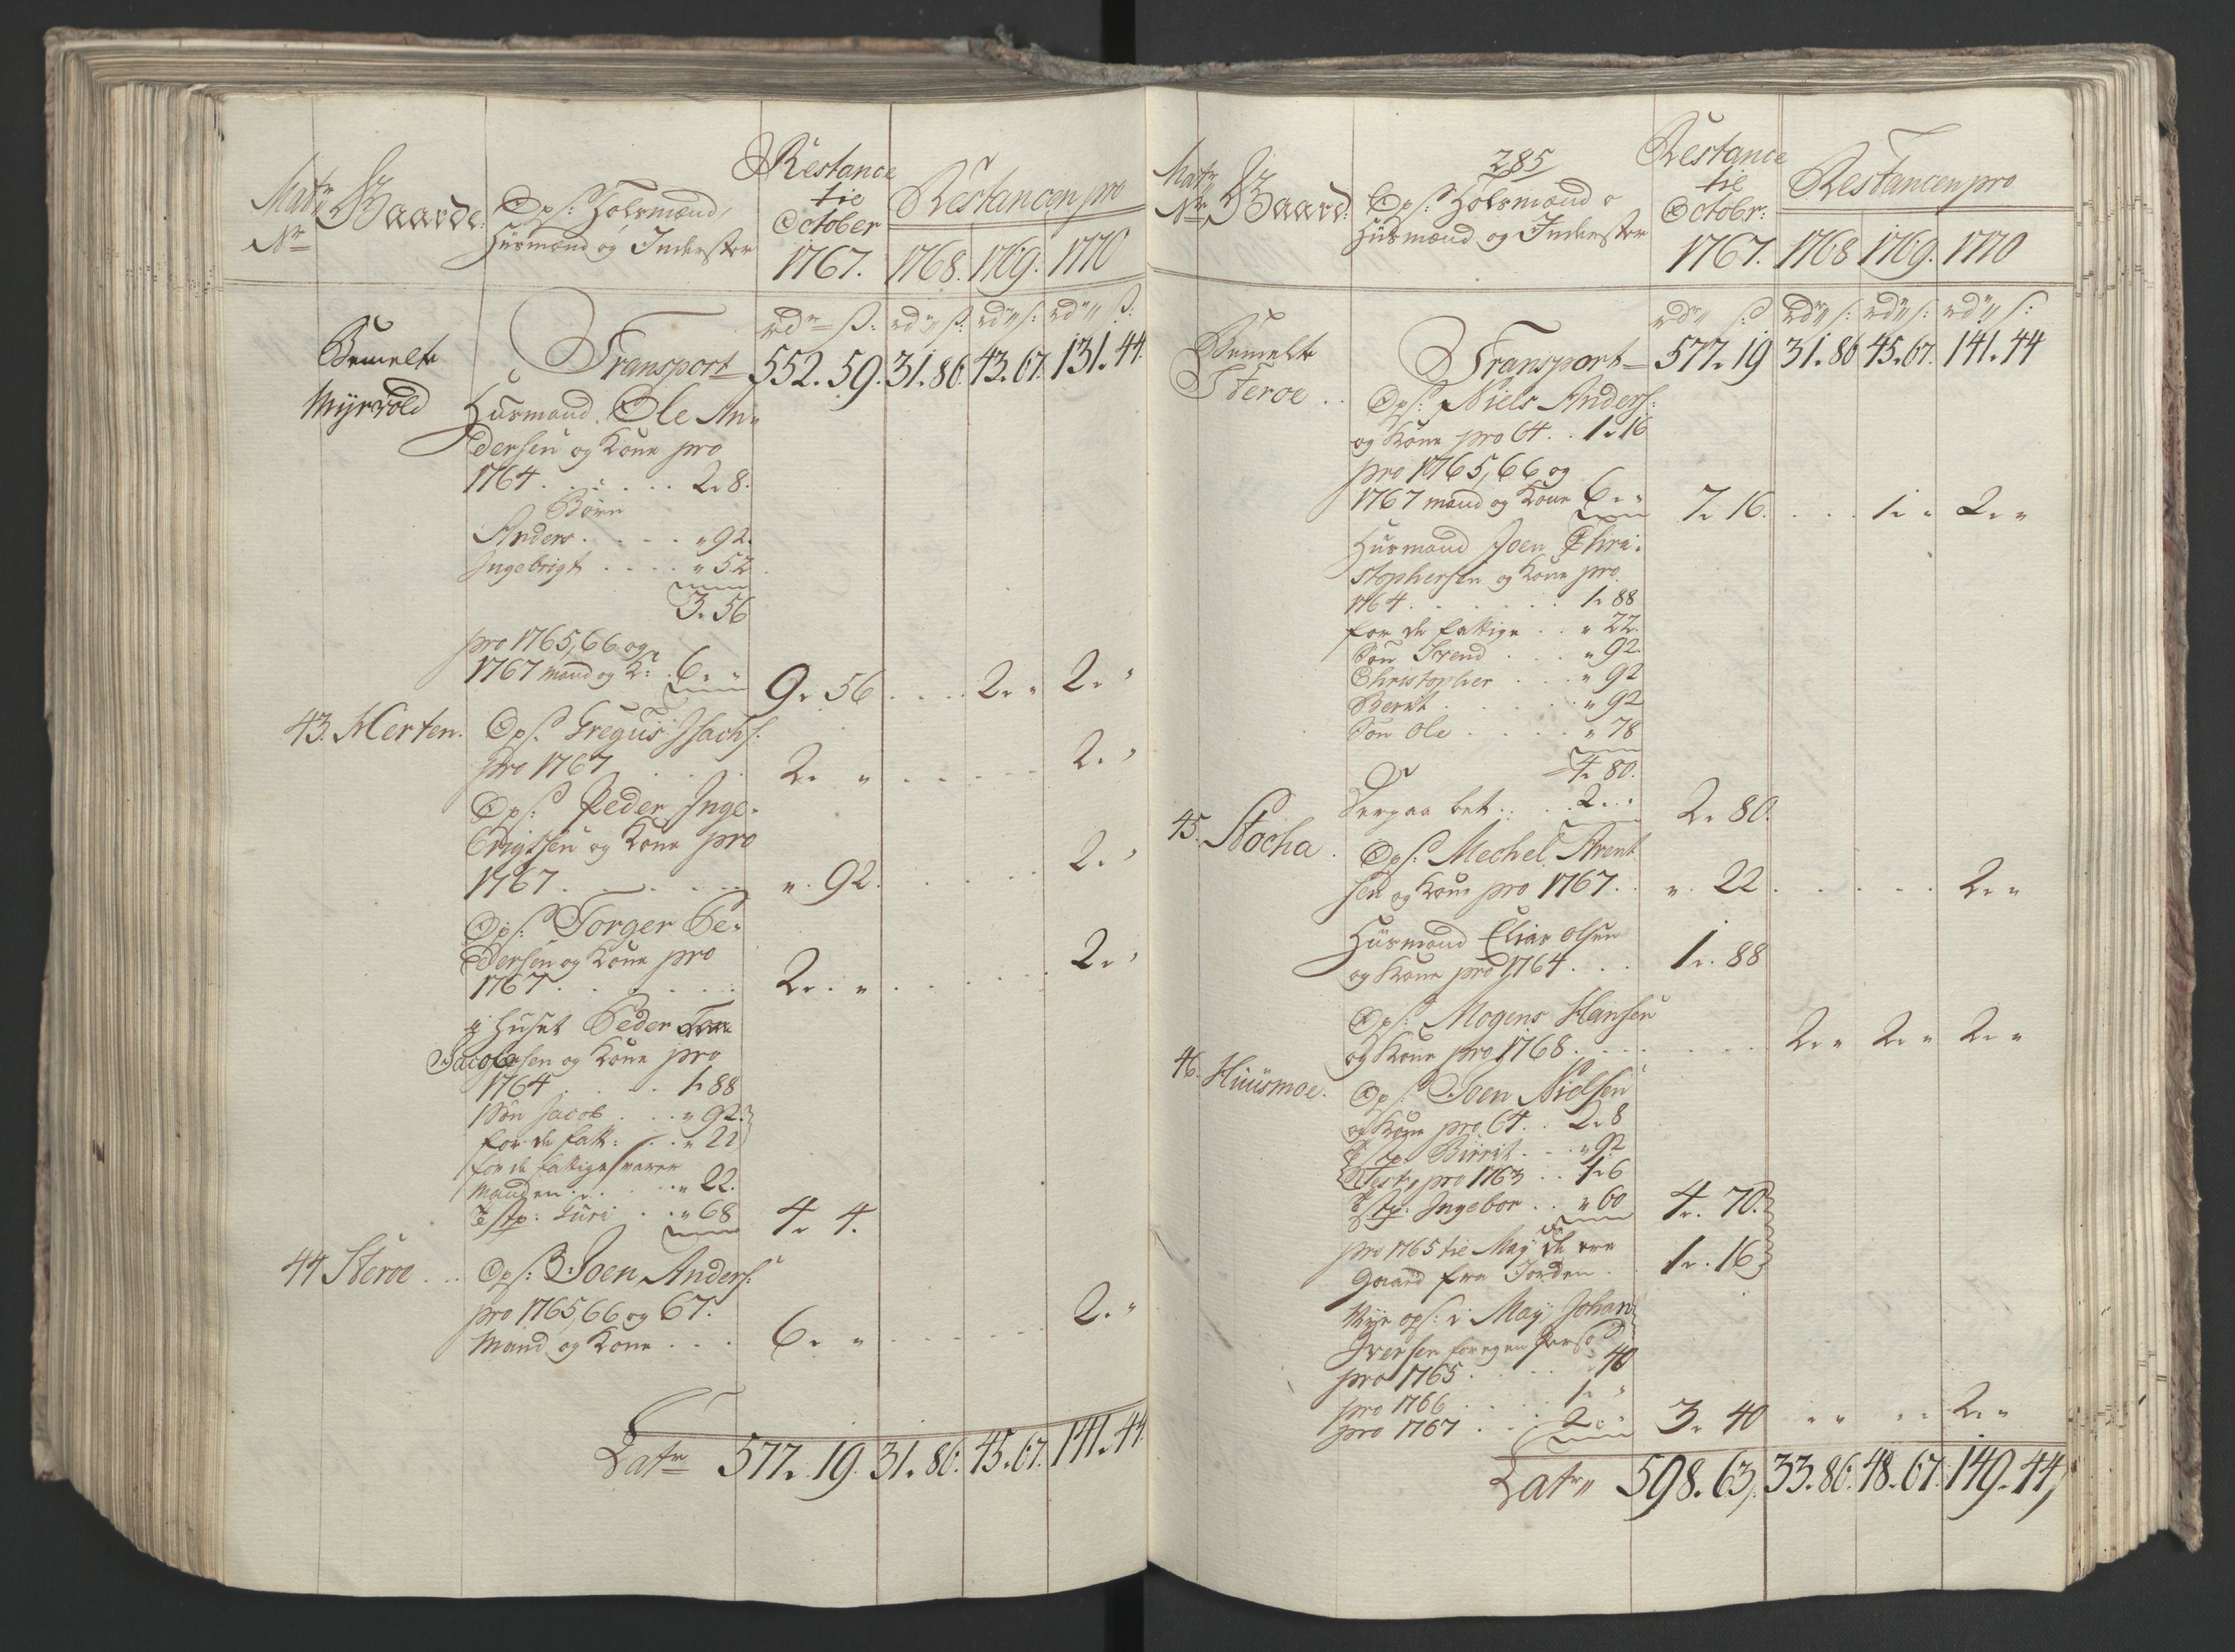 Matr Nr
Gaarde:
Ops: Folkmænd,
Huusmænd og Inderster
Restance til October 1767.
Restancen pro
1768. 1769. 1770
rdr ß: rdr ß: rdr ß: rdr ß:
Bemelte Transport 552. 59. 31. 86. 43. 67. 131. 44.
Myrvold Husmand Ole An-
dersen og Kone pro
1764 . . . . . . 2. 8.
Børn
Anders . . . . " 92.
Ingebrigt . . . . " 52.
3. 56
pro 1765, 66 og
1767 mand og K: . 6. " 9. 56 . . . . 2. " 2. "
43. Merten. Ops: Gregus Isachs:
pro 1767 . . . . . 2. " . . . . . . 2. "
Ops: Peder Inge-
brigtsen og Kone pro
1767 . . . . . . ". 92. . . . . . 2. "
Ops: Torger Pe-
dersen og Kone pro
1767 . . . . . . 2. " . . . . . . 2. "
j Huset Peder
Jacobsen og Kone pro
1764 . . . . . 1. 88
Søn Jacob . . . " 92.
for de fatt: . . . " 22
for de fattige svarer
Manden . . . . . " 22.
Tstp: Guri . . " 68 4. 4.
44 Steroe . . Ops: Joen Anders:
pro 1765, 66 og 67.
Mand og Kone . . . 6. " . . . . . . 2. "
Latr 577. 19. 31. 86. 45. 67. 141. 44
285
Matr Nr
Gaard:
Ops: Folkmænd
Huusmænd og Inderster
Restance til Octobr: 1767.
Restancen pro
1768 1769. 1770
rdr ß rdr ß: rdr ß: rdr ß:
Bemelte Transport 577. 19 31. 86 45. 67. 141. 44
Steroe . . Ops: Niels Anders:
og Kone pro 64 . . 1. 16
pro 1765, 66 og
1767 mand og Kone 6. " 7. 16. . . . 1. " 2. "
Husmand Joen Chri-
stophersen og Kone pro
1764 . . . . . . 1. 88
for de fattige . . " 22.
Søn Svend . . . " 92.
Christopher . . . " 92
Bernt . . . . . " 92
Søn Ole . . . . . " 78
4. 80.
Derpaa bet: . . 2. " 2. 80.
45. Stocha . Ops: Mechel Arent
sen og Kone pro 1767 . . ". 22 . . . . . . 2. "
Huusmand Elias Olsen
og Kone pro 1764 . . . 1. 88
Ops: Mogens Hansen
og Kone pro 1768 . . . . . . . 2. " 2. " 2. "
46. Huusmoe. Ops: Joen Nielsen
og Kone pro 64 . . 2. 8
Tstp: Birrit . . . " 92
Rest, pro 1763 . . 1. 6
Tstp: Ingebor . . " 60 4. 70.
pro 1765 til May da
gaard fra Jorden . . 1. 16
Nye ops: i May Johan
Iversen for egen Persohn
pro 1765 . . . . . " 40
pro 1766 . . . . . 1. "
pro 1767 . . . 2. " 3. 40 " " " " 2. "
Latr 598. 63. 33. 86. 48. 67. 149. 44